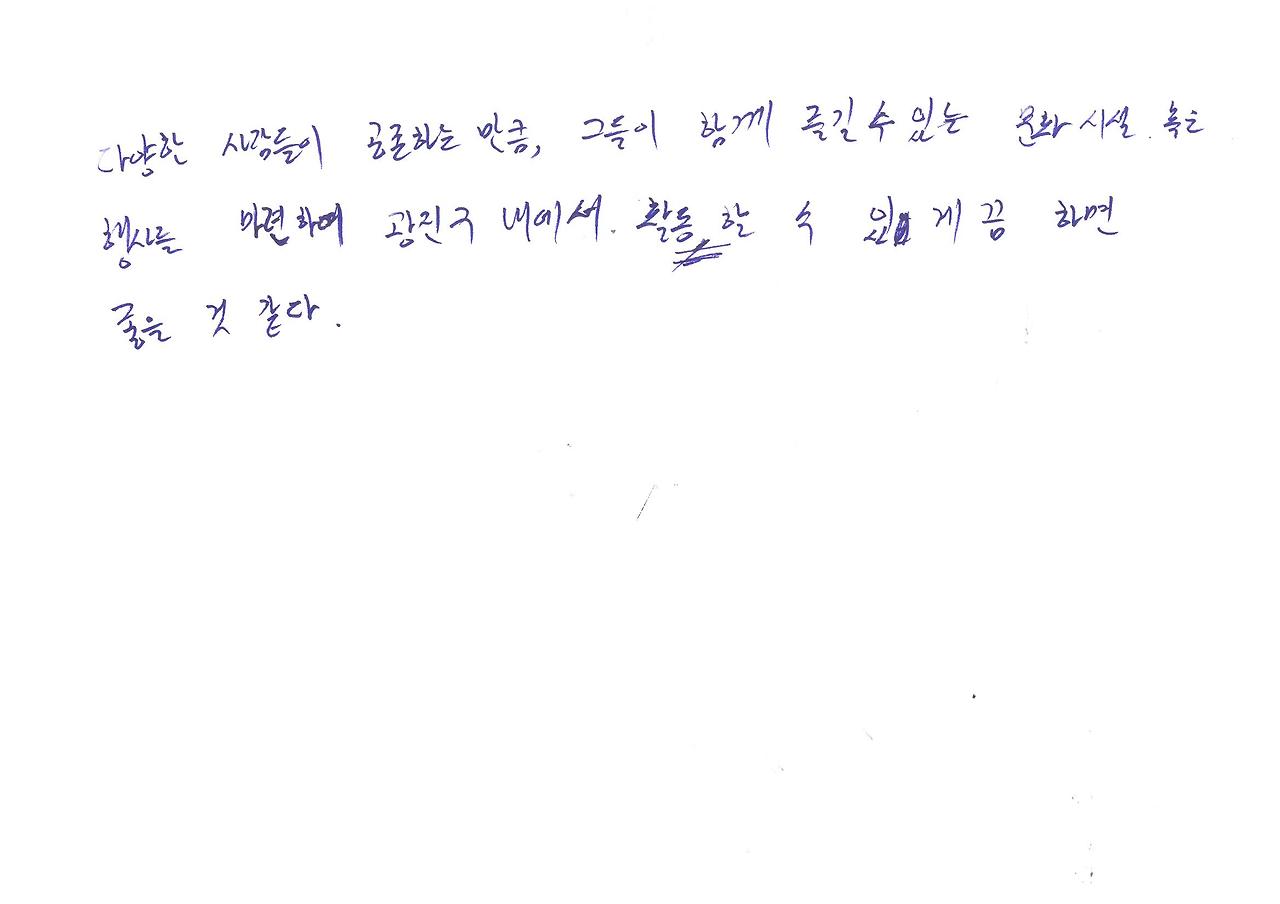 다양한 사람들이 공존하는 만큼, 그들이 함께 즐길 수 있는 문화 시설. 혹은
행사를 마련하여 광진구 내에서. 활동 할 수 있게끔 하면
좋을 것 같다.